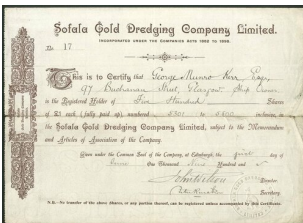 Sofala Gold Dredging Company Limited.
INCORPORATED UNDER THE COMPANIES ACTS 1862 TO 1898.
No. 17
This is to Certify that George Munro Kerr Esqre,
97 Buchanan Street, Glasgow, Ship Owner
is the Registered Holder of Five Hundred Shares
of £1 each (fully paid up), numbered 5301 to 5800 inclusive, in
the Sofala Gold Dredging Company Limited, subject to the Memorandum
and Articles of Association of the Company.
Given under the Common Seal of the Company, at Edinburgh, the first day of
One Thousand Nine Hundred and
Director.
Secretary.
N.B.—No transfer of the above Shares, or any portion thereof, can be registered unless accompanied by this Certificate.